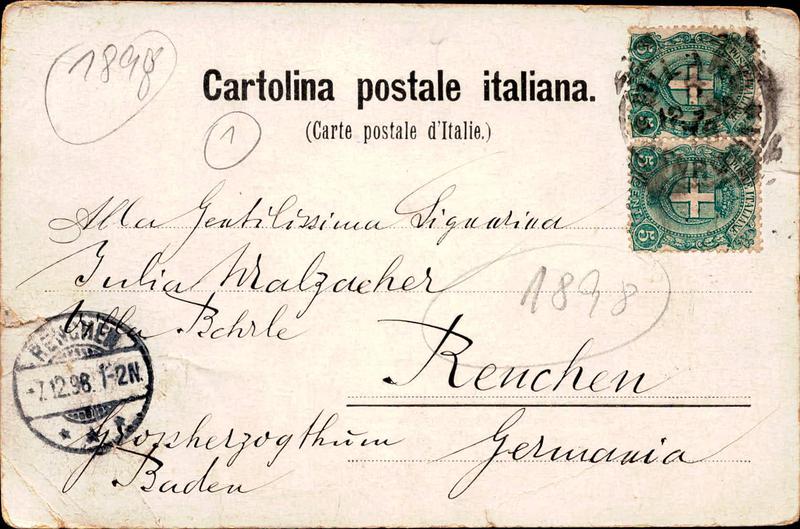 1898
Cartolina postale italiana.
(Carte postale d'Italie.)
1
Alla Gentilissima Signorina
Julia Walzacher
Villa Behrle
1898
Renchen
Grossherzogthum
Germania
Baden
RENCHEN
-7.12.98. 1-2N.
5
5
5
5